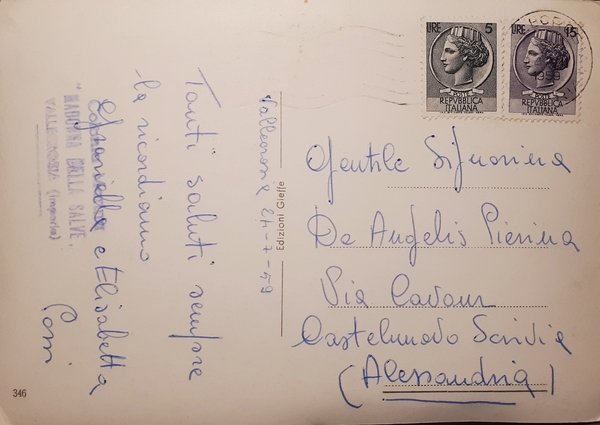 Tanti saluti sempre
la ricordiamo
e Elisabetta
"MADONNA DELLA SALVE"
(Imperia)
24-7-59
Edizioni Gieffe
346
LIRE 5
POSTE
REPVBBLICA
ITALIANA
LIRE 15
POSTE
REPVBBLICA
ITALIANA
1959
Gentile Signorina
De Angelis Pierina
Via Cavour
Castelnuovo Scrivia
(Alessandria)